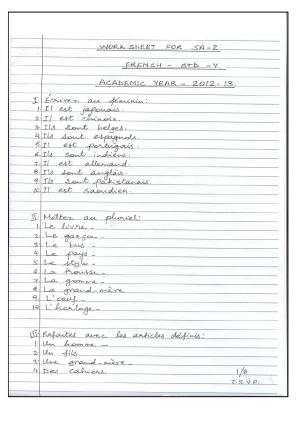 WORK SHEET FOR SA-2
FRENCH - STD - V
ACADEMIC YEAR - 2012-13
I Écrivez au féminin:
1. Il est japonais.
2. Il est chinois.
3. Ils sont belges.
4. Ils sont espagnols.
5. Il est portugais.
6. Ils sont indiens.
7. Il est allemand.
8. Ils sont anglais.
9. Ils sont pakistanais.
10. Il est saoudien.
II. Mettez au pluriel:
1. Le livre -
2. Le garçon -
3. Le bus -
4. Le pays -
5. Le stylo -
6. La trousse -
7. La gomme -
8. La grand-mère
9. L'oeuf -
10. L'horloge -
III. Refaites avec les articles définis:
1. Un homme -
2. Un fils
3. Une grand-mère -
4. Des cahiers.
T.S.V.P.